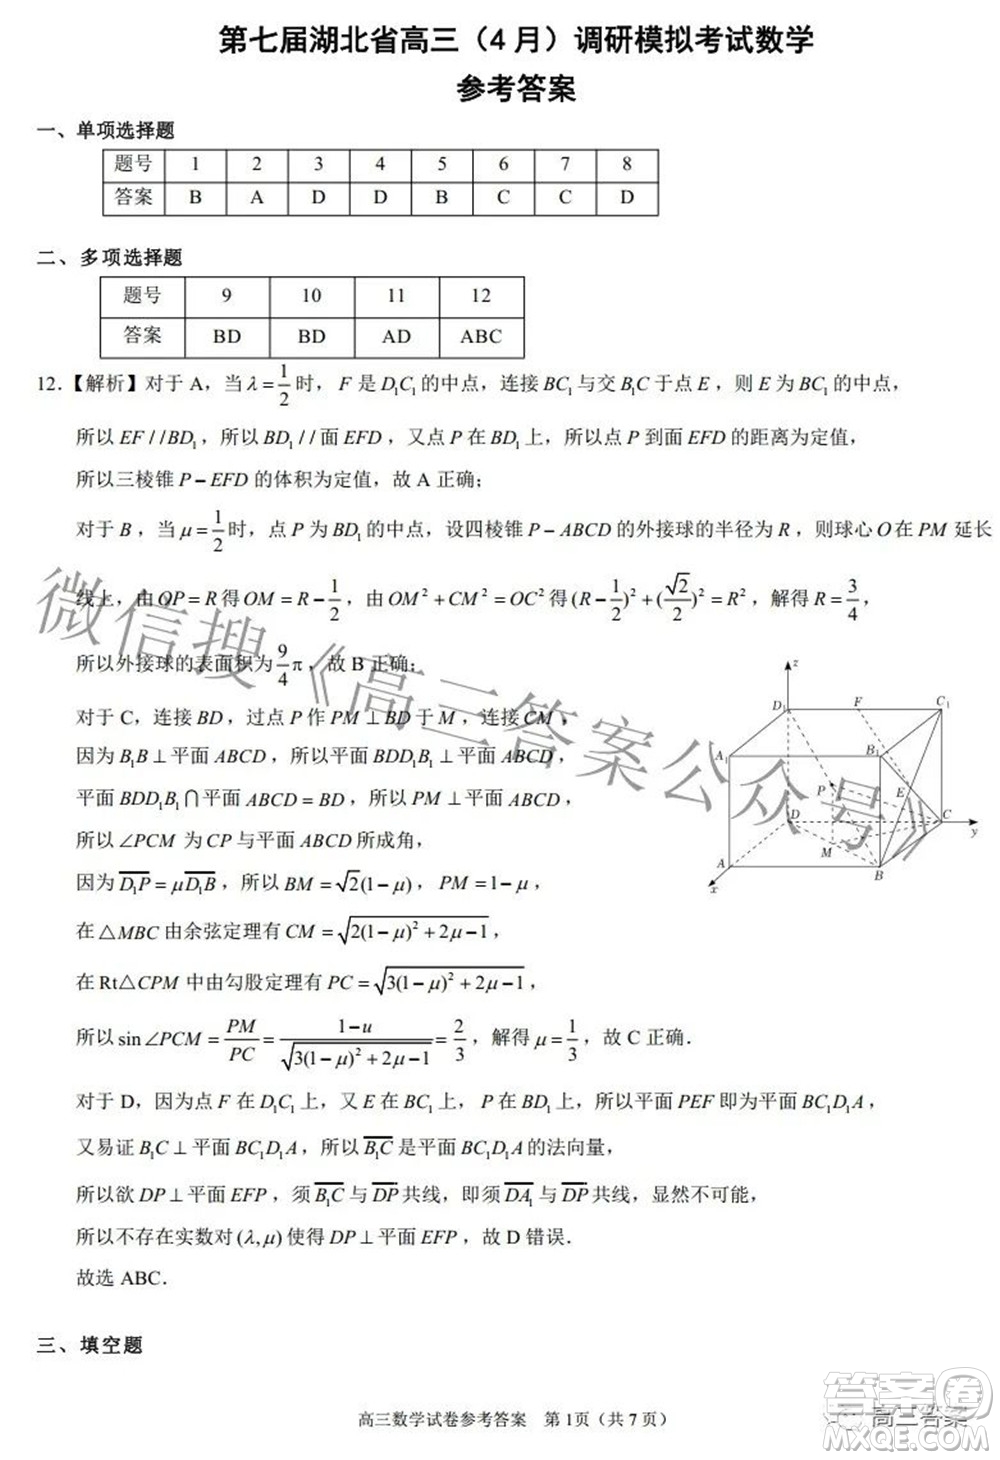 第七届湖北省高三（4月）调研模拟考试数学
参考答案
一、单项选择题
题号 1 2 3 4 5 6 7 8
答案 B A D D B C C D
二、多项选择题
题号 9 10 11 12
答案 BD BD AD ABC
12.【解析】对于 A，当 λ = 1/2 时，F 是 D₁C₁ 的中点，连接 BC₁ 与交 B₁C 于点 E，则 E 为 BC₁ 的中点，
所以 EF // BD₁，所以 BD₁ // 面 EFD，又点 P 在 BD₁ 上，所以点 P 到面 EFD 的距离为定值，
所以三棱锥 P − EFD 的体积为定值，故 A 正确；
对于 B，当 μ = 1/2 时，点 P 为 BD₁ 的中点，设四棱锥 P − ABCD 的外接球的半径为 R，则球心 O 在 PM 延长
线上，由 OP = R 得 OM = R − 1/2，由 OM² + CM² = OC² 得 (R − 1/2)² + (√2/2)² = R²，解得 R = 3/4，
所以外接球的表面积为 9/4 π，故 B 正确；
对于 C，连接 BD，过点 P 作 PM ⊥ BD 于 M，连接 CM，
因为 B₁B ⊥ 平面 ABCD，所以平面 BDD₁B₁ ⊥ 平面 ABCD，
平面 BDD₁B₁ ∩ 平面 ABCD = BD，所以 PM ⊥ 平面 ABCD，
所以 ∠PCM 为 CP 与平面 ABCD 所成角，
因为 D₁P = μD₁B，所以 BM = √2(1 − μ)，PM = 1 − μ，
在 △MBC 由余弦定理有 CM = √(2(1 − μ)² + 2μ − 1)，
在 Rt△CPM 中由勾股定理有 PC = √(3(1 − μ)² + 2μ − 1)，
所以 sin∠PCM = PM/PC = (1 − u)/√(3(1 − μ)² + 2μ − 1) = 2/3，解得 μ = 1/3，故 C 正确．
对于 D，因为点 F 在 D₁C₁ 上，又 E 在 BC₁ 上，P 在 BD₁ 上，所以平面 PEF 即为平面 BC₁D₁A，
又易证 B₁C ⊥ 平面 BC₁D₁A，所以 B₁C 是平面 BC₁D₁A 的法向量，
所以欲 DP ⊥ 平面 EFP，须 B₁C 与 DP 共线，即须 DA₁ 与 DP 共线，显然不可能，
所以不存在实数对 (λ, μ) 使得 DP ⊥ 平面 EFP，故 D 错误．
故选 ABC．
z
D₁ F C₁
A₁ B₁
P E
D C y
M
A B
x
三、填空题
高三数学试卷参考答案 第 1页（共 7 页）
微信搜《高三答案公众号》
高三答案
答案圈
MXQE.COM